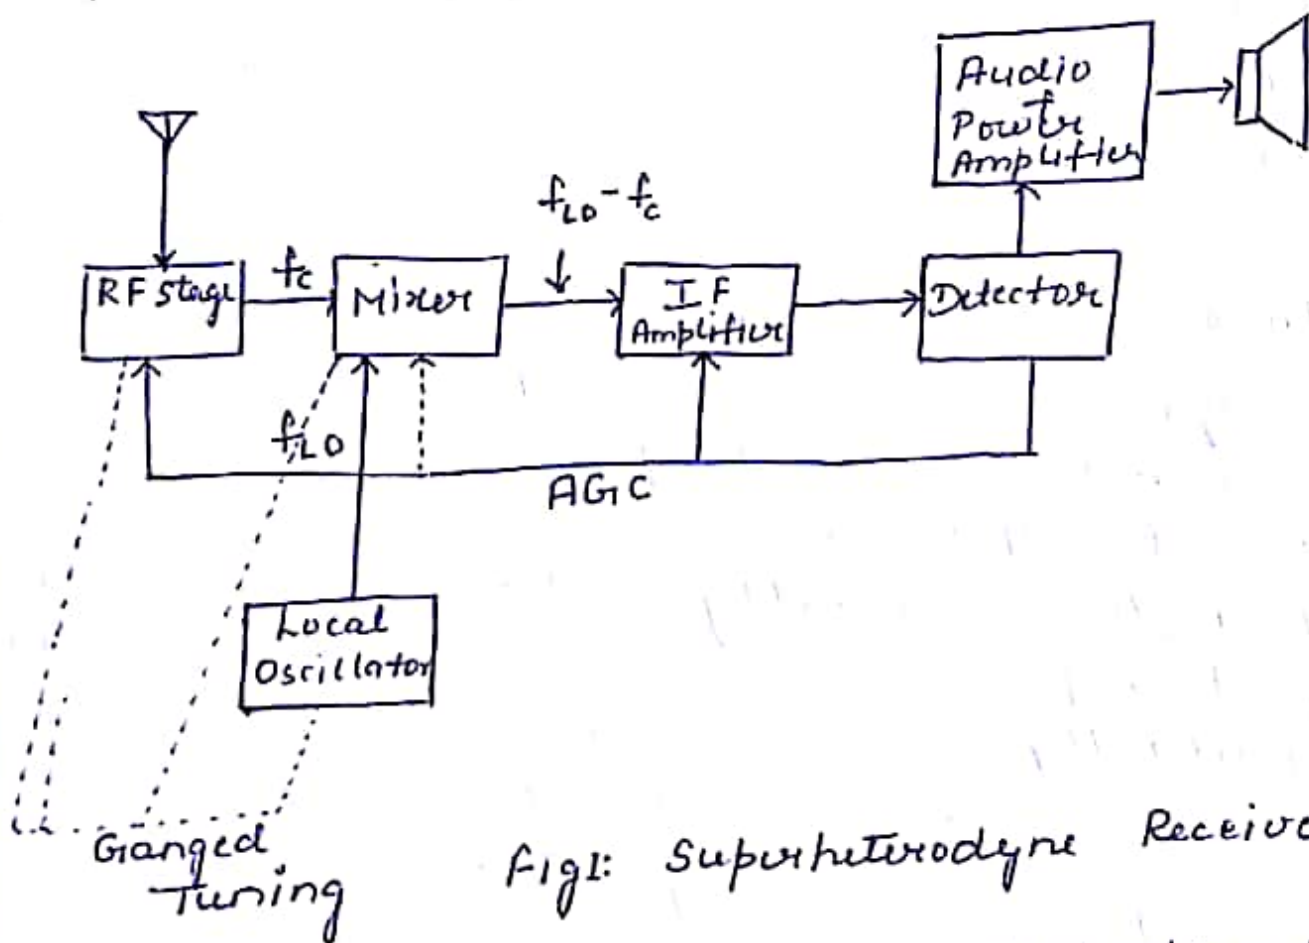 Audio
Power
Amplifier
f_LO - f_c
RF Stage
f_c
Mixer
IF
Amplifier
Detector
f_LO
AGC
Local
Oscillator
Ganged
Tuning
Fig1: Superheterodyne Receive